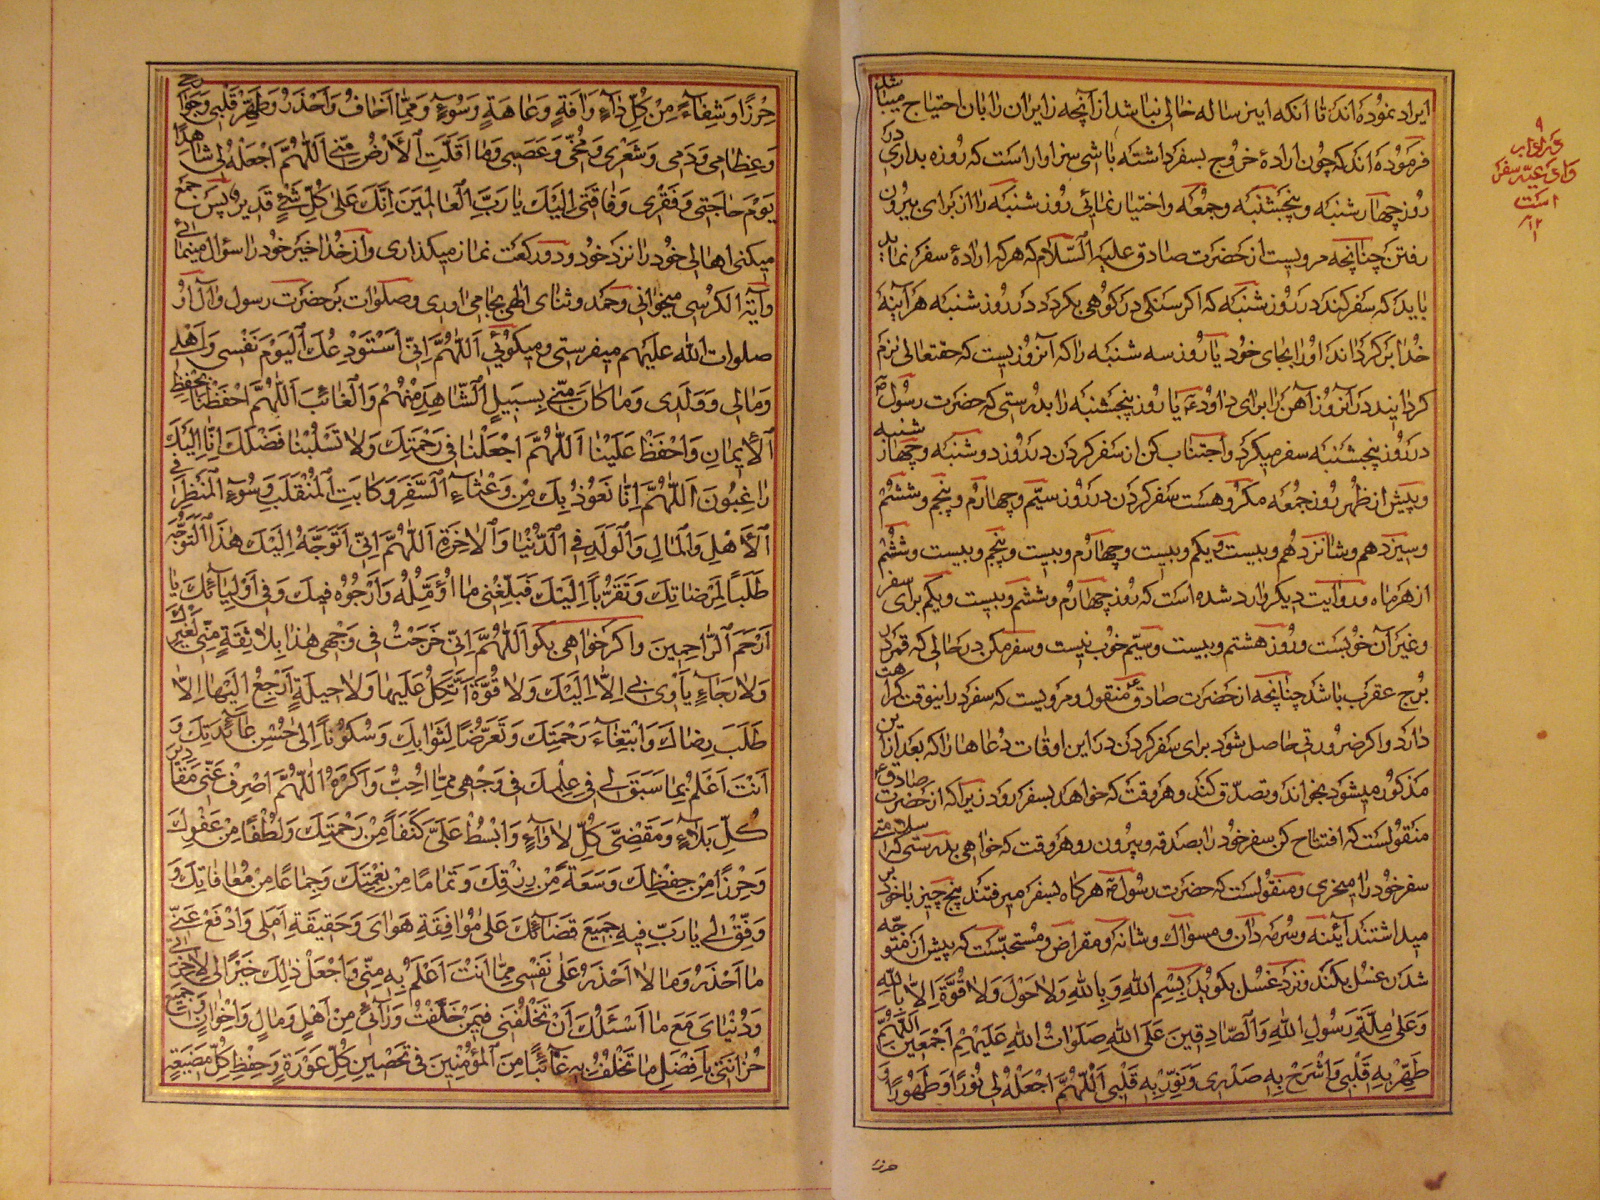 ایراد نموده‌اند تا آنکه این رساله خالی نباشد از آنچه زایران را بآن احتیاج میباشد
فرموده‌اند که چون ارادهٔ خروج بسفر داشته باشی سزاوار است که روزه بداری در
روز چهارشنبه و پنجشنبه و جمعه و اختیار نمائی روز شنبه را از برای بیرون
رفتن چنانچه مرویست از حضرت صادق علیه السلام که هر که ارادهٔ سفر نماید
باید که سفر کند در روز شنبه که اگر سنگی در کوهی بگردد در روز شنبه هر آینه
خدا بر گرداند او را بجای خود یا روز سه شنبه را که آنروزیست که حقتعالی نرم
گردانید در آنروز آهن را برای داود ع یا روز پنجشنبه را بدرستی که حضرت رسول ص
در روز پنجشنبه سفر میکرد و اجتناب کن از سفر کردن در روز دوشنبه و چهارشنبه
و پیش از ظهر روز جمعه و مکروهست سفر کردن در روز سیّم و چهارم و پنجم و ششم
و سیزدهم و شانزدهم و بیست و یکم و بیست و چهارم و بیست و پنجم و بیست و ششم
از هر ماه و روایت دیگر وارد شده است که روز چهارم و ششم و بیست و یکم برای سفر
و غیر آن خوبست و روز هشتم و بیست و سیّم خوب نیست و سفر مکن در حالی که قمر در
برج عقرب باشد چنانچه از حضرت صادق ع منقول و مرویست که سفر در اینوقت کراهت
دارد و اگر ضرورتی حاصل شود برای سفر کردن در این اوقات دعاها را که بعد از این
مذکور میشود بخواند و تصدّق کند و هر وقت که خواهد بسفر رود زیرا که از حضرت صادق ع
منقولست که افتتاح کن سفر خود را بصدقه و بیرون رو هر وقت که خواهی بدرستی که سلامتی
سفر خود را میخری و منقولست که حضرت رسول ص هرگاه بسفر میرفتند پنج چیز با خود بر
میداشتند آینه و سرمه دان و مسواک و شانه و مقراض و مستحبّست که پیش از متوجّه
شدن غسل بکند و نزد غسل بگوید بِسْمِ اللهِ وَبِاللهِ وَلاٰ حَوْلَ وَلاٰ قُوَّةَ اِلاّٰ بِاللهِ
وَعَلىٰ مِلَّةِ رَسُولِ اللهِ وَالصّٰادِقينَ عَلَى اللهِ صَلَوٰاتُ اللهِ عَلَيْهِمْ اَجْمَعينَ اَللّٰهُمَّ
طَهِّرْ بِهِ قَلْبي وَاشْرَحْ بِهِ صَدْري وَنَوِّرْ بِهِ قَلْبي اَللّٰهُمَّ اجْعَلْهُ لي نُوراً وَطَهُوراً وَ
حرزا
است
حِرْزاً وَشِفٰآءً مِنْ كُلِّ دٰآءٍ وَاٰفَةٍ وَعٰاهَةٍ وَسُوءٍ وَمِمّٰا اَخٰافُ وَاَحْذَرُ وَطَهِّرْ قَلْبي وَجَوٰارِحي
وَعِظٰامي وَدَمي وَشَعْري وَمُخّي وَعَصَبي وَمٰا اَقَلَّتِ الْاَرْضُ مِنّي اَللّٰهُمَّ اجْعَلْهُ لي شٰاهِداً
يَوْمَ حٰاجَتي وَفَقْري وَفٰاقَتي اِلَيْكَ يٰا رَبَّ الْعٰالَمينَ اِنَّكَ عَلىٰ كُلِّ شَيْءٍ قَديرٌ پس جمع
میکنی اهالی خود را نزد خود و دو رکعت نماز میگذاری و از خدا خیر خود را سؤال مینمائی
و آیة الکرسی میخوانی و حمد و ثنای الهی بجا می‌آوری و صلوات بر حضرت رسول و آل او
صلوات الله علیهم میفرستی و میگوئی اَللّٰهُمَّ اِنّي اَسْتَوْدِعُكَ الْيَوْمَ نَفْسي وَاَهْلي
وَمٰالي وَوَلَدي وَمَا كٰانَ مِنّي بِسَبيلٍ الشّٰاهِدَ مِنْهُمْ وَالْغٰائِبَ اَللّٰهُمَّ احْفَظْنٰا بِحِفْظِ
الْايمٰانِ وَاحْفَظْ عَلَيْنٰا اَللّٰهُمَّ اجْعَلْنٰا في رَحْمَتِكَ وَلاٰ تَسْلُبْنٰا فَضْلَكَ اِنّٰا اِلَيْكَ
رٰاغِبُونَ اَللّٰهُمَّ اِنّٰا نَعُوذُ بِكَ مِنْ وَعْثٰآءِ السَّفَرِ وَكٰابَتِ الْمُنْقَلَبِ وَسُوءِ الْمَنْظَرِ في
الْاَهْلِ وَالْمٰالِ وَالْوَلَدِ فِي الدُّنْيٰا وَالْاٰخِرَةِ اَللّٰهُمَّ اِنّي اَتَوَجَّهُ اِلَيْكَ هٰذَا التَّوَجُّهَ
طَلَباً لِمَرْضٰاتِكَ وَتَقَرُّباً اِلَيْكَ فَبَلِّغْني مٰا اُؤَمِّلُهُ وَاَرْجُوهُ فيكَ وَفي اَوْلِيٰآئِكَ يٰا
اَرْحَمَ الرّٰاحِمينَ و اگر خواهی بگو اَللّٰهُمَّ اِنّي خَرَجْتُ في وَجْهي هٰذٰا بِلاٰ ثِقَةٍ مِنّي لِغَيْرِكَ
وَلاٰ رَجٰاءٍ يَأْوي بي اِلاّٰ اِلَيْكَ وَلاٰ قُوَّةَ اَتَّكِلُ عَلَيْهٰا وَلاٰ حيلَةٍ اَرْجِعُ اِلَيْهٰا اِلاّٰ
طَلَبَ رِضٰاكَ وَابْتِغٰآءَ رَحْمَتِكَ وَتَعَرُّضاً لِثَوٰابِكَ وَسُكُوناً اِلىٰ حُسْنِ عٰائِدَتِكَ وَ
اَنْتَ اَعْلَمُ بِمٰا سَبَقَ لي في عِلْمِكَ في وَجْهي مِمّٰا اُحِبُّ وَاَكْرَهُ اَللّٰهُمَّ اصْرِفْ عَنّي مَقٰاديرَ
كُلِّ بَلاٰءٍ وَمَقْضِيَّ كُلِّ لَاْوٰآءٍ وَابْسُطْ عَلَيَّ كَنَفاً مِنْ رَحْمَتِكَ وَلُطْفاً مِنْ عَفْوِكَ
وَحِرْزاً مِنْ حِفْظِكَ وَسَعَةً مِنْ رِزْقِكَ وَتَمٰاماً مِنْ نِعْمَتِكَ وَجِمٰاعاً مِنْ مُعٰافٰاتِكَ وَ
وَفِّقْ لي يٰا رَبِّ فيهِ جَميعَ قَضٰائِكَ عَلىٰ مُوٰافِقَةِ هَوٰايَ وَحَقيقَةِ اَمَلي وَادْفَعْ عَنّي
مٰا اَحْذَرُ وَمٰا لاٰ اَحْذَرُ عَلىٰ نَفْسي مِمّٰا اَنْتَ اَعْلَمُ بِهِ مِنّي وَاجْعَلْ ذٰلِكَ خَيْراً لي لِاٰخِرَتي
وَدُنْيٰايَ مَعَ مٰا اَسْئَلُكَ اَنْ تَخْلُفَني فيمَنْ خَلَّفْتُ وَرٰآئي مِنْ اَهْلٍ وَمٰالٍ وَاِخْوٰانٍ وَجَميعِ
حُزٰانَتي بِاَفْضَلِ مٰا تَخْلُفُ بِهِ غٰائِباً مِنَ الْمُؤْمِنينَ في تَحْصينِ كُلِّ عَوْرَةٍ وَحِفْظِ كُلِّ مَضيعَةٍ